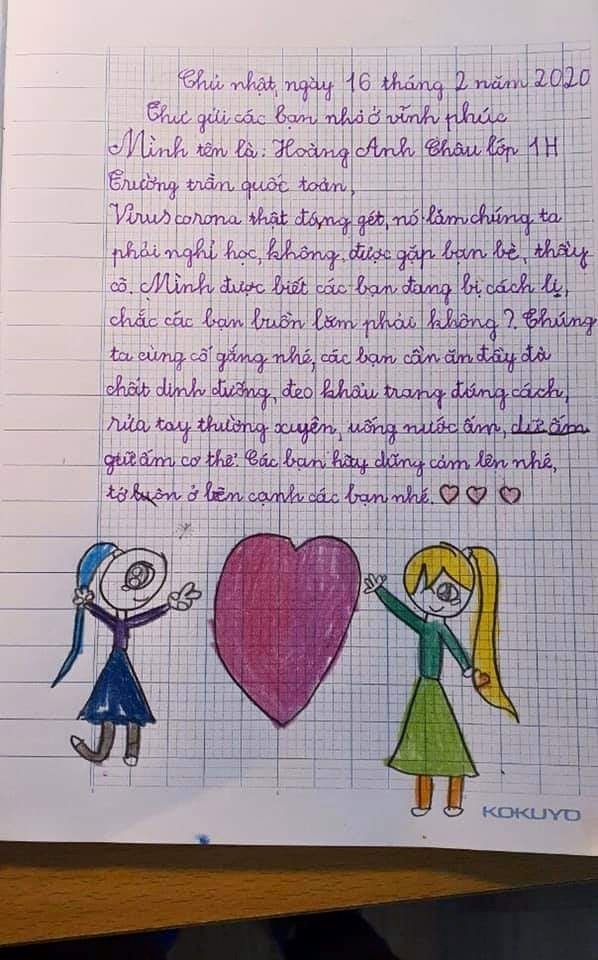 Chủ nhật, ngày 16 tháng 2 năm 2020
Thư gửi các bạn nhỏ ở vĩnh phúc
Mình tên là: Hoàng Anh Châu lớp 1H
Trường trần quốc toản,
Virus corona thật đáng gét, nó làm chúng ta
phải nghỉ học, không được gặp bạn bè, thầy
cô. Mình được biết các bạn đang bị cách li,
chắc các bạn buồn lắm phải không? Chúng
ta cùng cố gắng nhé, các bạn cần ăn đầy đủ
chất dinh dưỡng, đeo khẩu trang đúng cách,
rửa tay thường xuyên, uống nước ấm,
giữ ấm cơ thể. Các bạn hãy dũng cảm lên nhé,
tớ luôn ở bên cạnh các bạn nhé.
KOKUYO